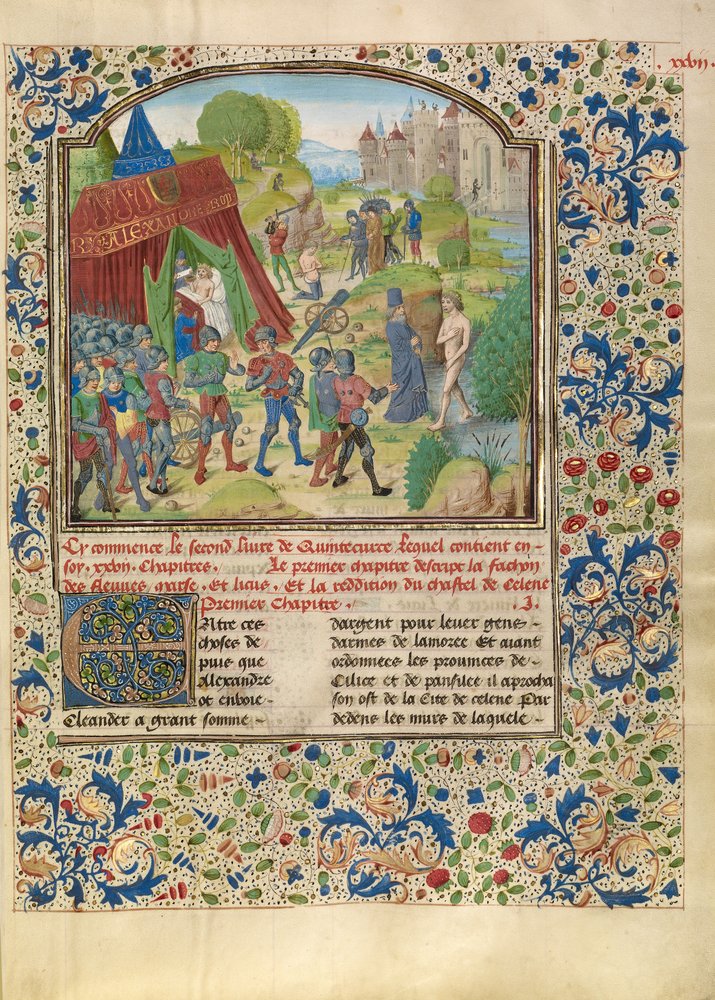 xxviij.
REX ALEXANDRE ROY
Cy commence le second liure de Quintecurce lequel contient en-
soy .xxviij. Chapitres. Le premier chapitre descripe la fachon
des fleuues marse. Et licus. Et la reddition du chastel de Celene
Premier Chapitre. .I.
Entre ces
choses de
puis que
Alexandre
ot enuoie
Cleander a grant somme
dargent pour leuer gens
darmes de lamoree Et aiant
ordonnees les prouinces de
Cilice et de pansilee il aprocha
son ost de la Cite de celene Par
dedens les murs de laquele